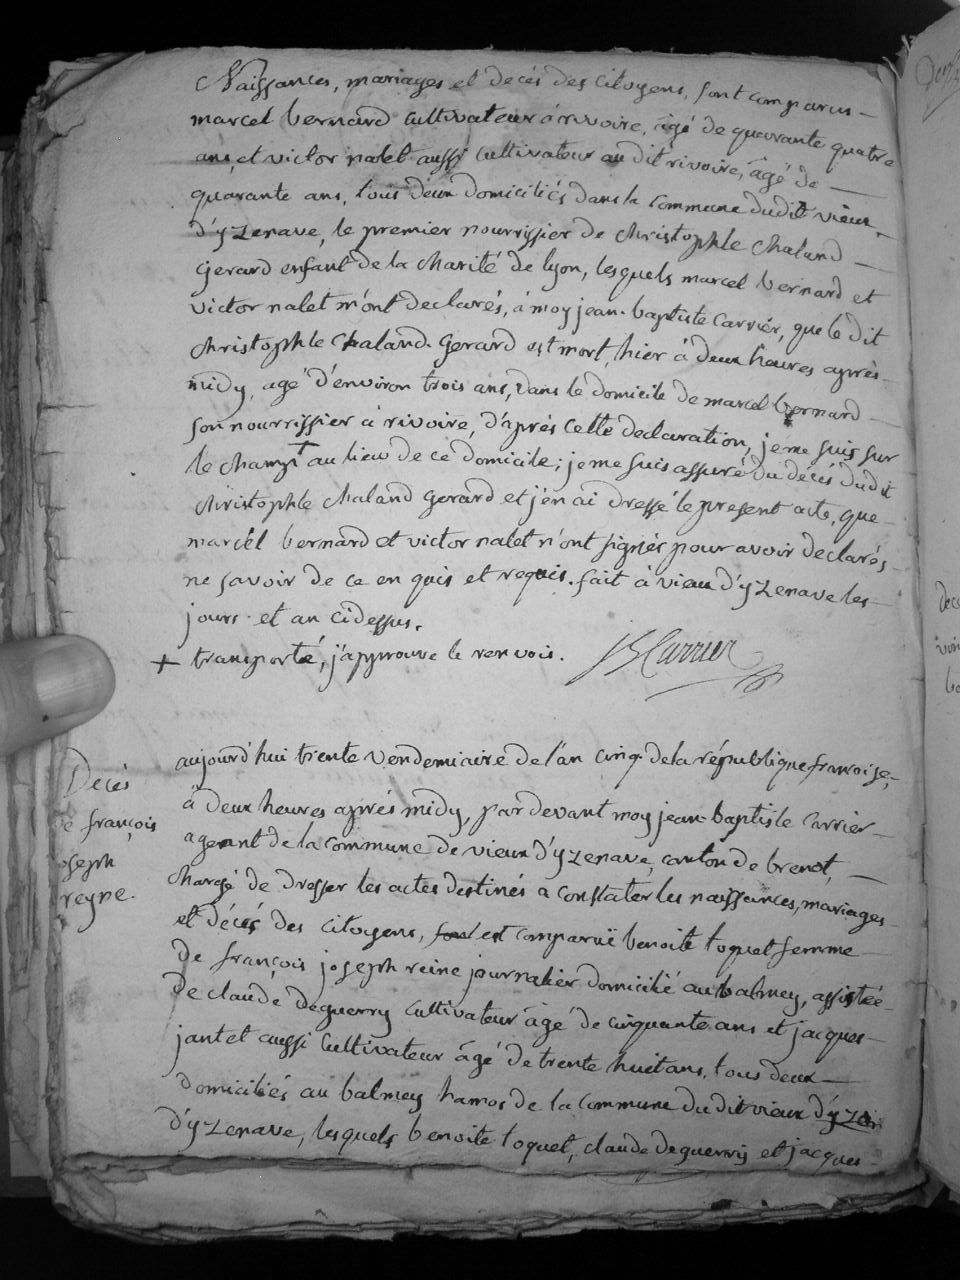 Naissances, mariages et decés des Citoyens, sont comparus
marcel bernard cultivateur á rivoire, âgé de quarante quatre
ans, et victor nalet aussi cultivateur au dit rivoire, âgé de
quarante ans, tous deux domiciliés dans la Commune dudit vieux
d'yzenave, le premier nourrissier de christophle chaland
Gerard enfant de la charité de lyon, lesquels marcel bernard et
victor nalet m'ont declarés, á moy jean-baptiste carrier, que le dit
christophle Chaland-Gerard est mort, hier à deux heures aprés
midy, agé d'environ trois ans, dans le domicile de marcel bernard
son nourrissier à rivoire, d'aprés cette declaration, je me suis sur
le champ + au lieu de ce domicile; je me suis assuré du décés dudit
christophle chaland gerard et j'en ai dressé le present acte, que
marcel bernard et victor nalet n'ont signés pour avoir declarés
ne savoir de ce en quis et requis. fait à vieux d'yzenave les
jours et an cidessus.
+ transporté, j'approuve le renvois. JB Carrier
aujourd'hui trente vendemiaire de l'an cinq de la république françoise,
á deux heures aprés midy, pardevant moy jean-baptiste carrier
agent de la commune de vieux d'yzenave, canton de brenot,
chargé de dresser les actes destinés a constater les naissances, mariages
et décés des citoyens, sont est comparuë benoite toquet femme
de françois joseph reine journalier domicilié au balmey, assistée
de claude deguerry cultivateur âgé de cinquante ans et jacques
jantet aussi cultivateur âgé de trente huit ans, tous deux
domiciliés au balmey hamos de la commune du dit vieux d'yze
d'yzenave, lesquels benoite toquet, claude deguerry et jacques
Decés
françois
oseph
reyne.